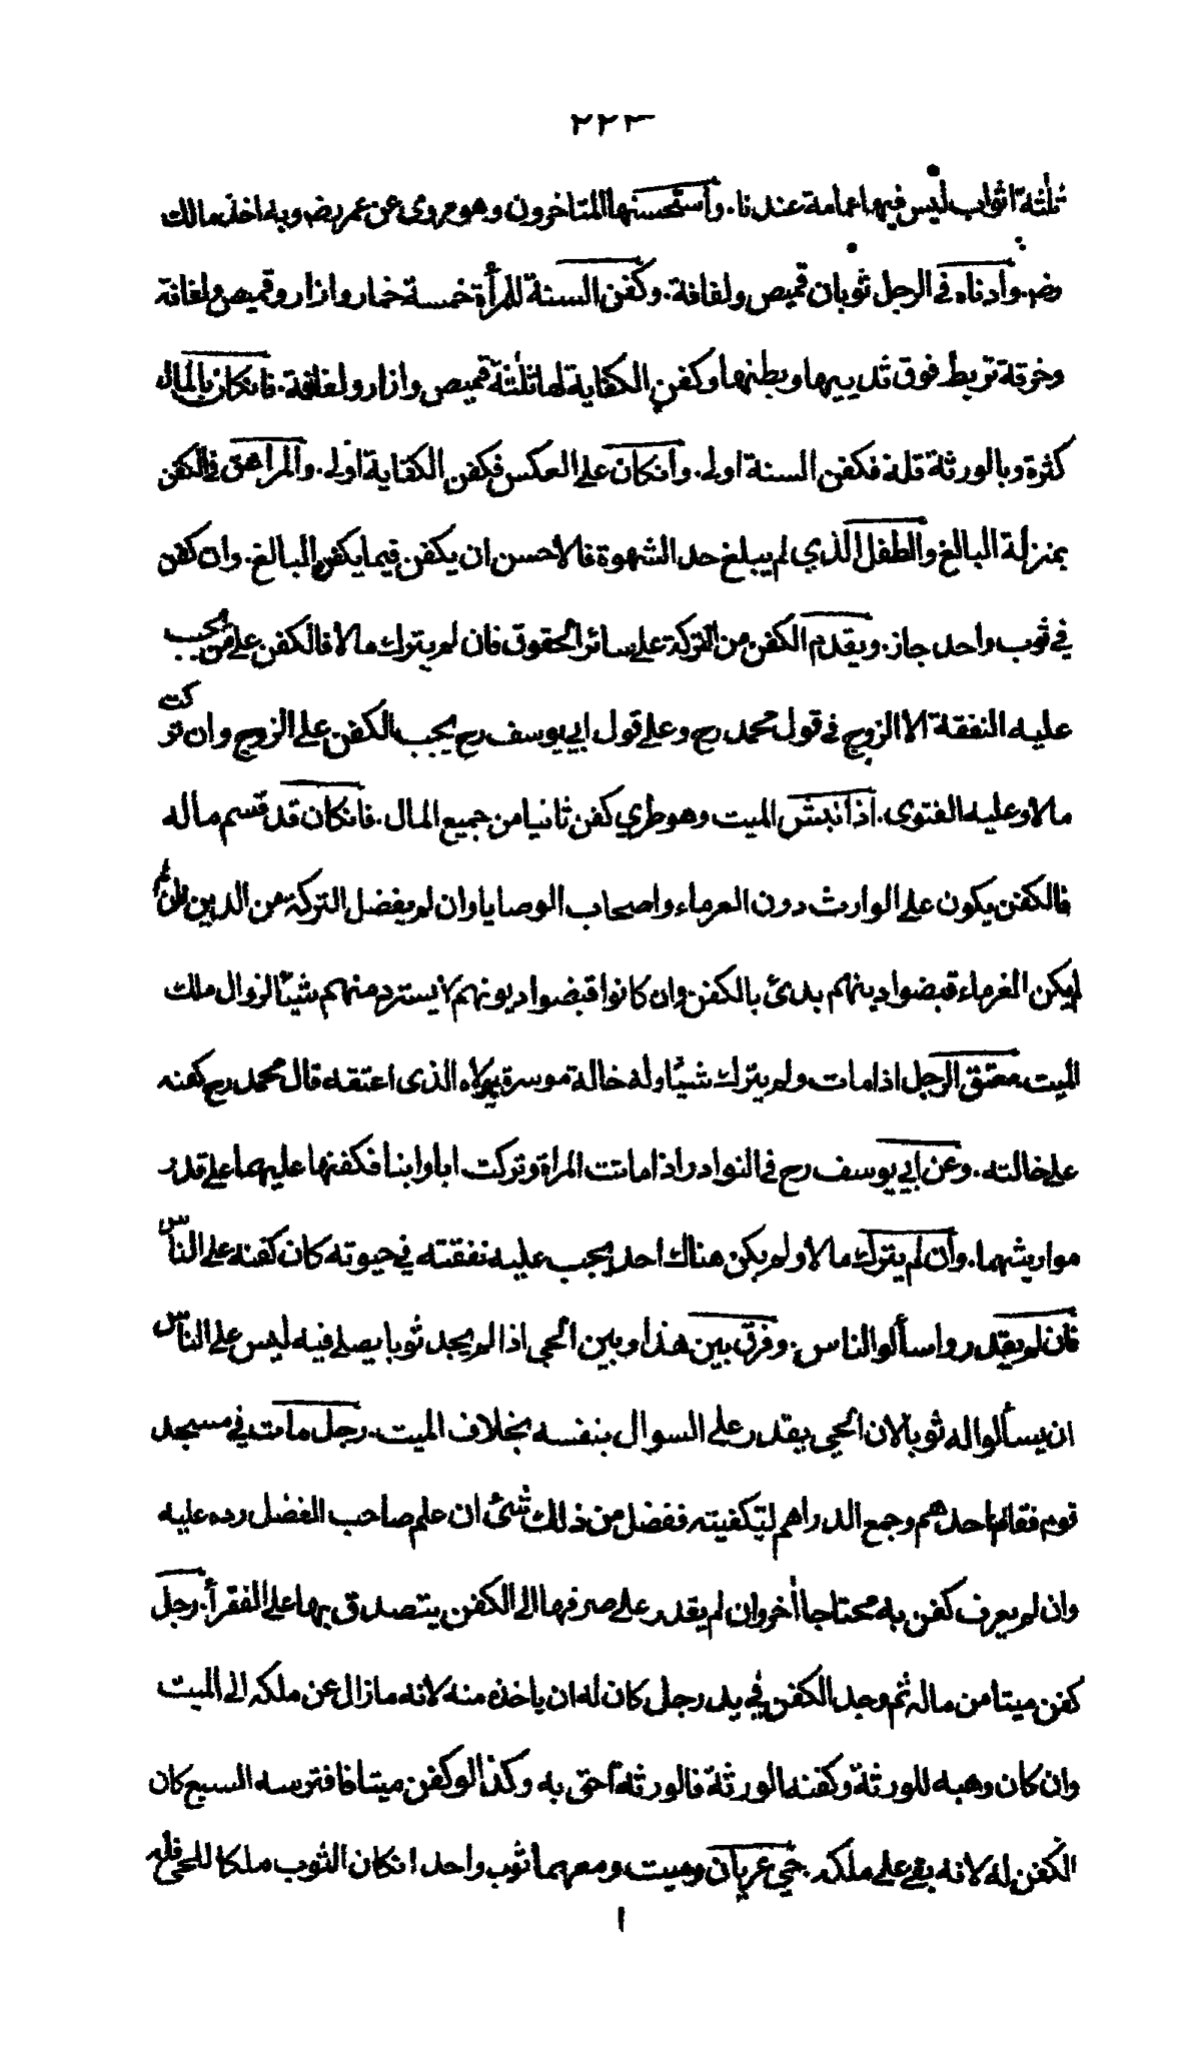 ٢٢٣
ثلثة اثواب ليس فيها عمامة عندنا. واستحسنها المتاخرون وهو مروى عن عمر رض وبه اخذ مالك
رض. وادناه فى الرجل ثوبان قميص ولفافة. وكفن السنة للمرأة خمسة خمار وازار وقميص ولفافة
وخرقة تربط فوق ثدييها وبطنها وكفن الكفاية لها ثلثة قميص وازار ولفافة. فانكان بالمال
كثرة وبالورثة قلة فكفن السنة اولى. وانكان على العكس فكفن الكفاية اولى. والمراهق فى الكفن
بمنزلة البالغ والطفل الذي لم يبلغ حد الشهوة فالاحسن ان يكفن فيما يكفن البالغ. وان كفن
في ثوب واحد جاز. ويقدم الكفن من التركة على سائر الحقوق فان لم يترك مالا فالكفن على من يجب
عليه النفقة الا الزوج فى قول محمد رح وعلى قول ابي يوسف رح يجب الكفن على الزوج وان تركت
مالا وعليه الفتوى. اذا نبش الميت وهو طري كفن ثانيا من جميع المال. فانكان قد قسم ماله
فالكفن يكون على الوارث دون الغرماء واصحاب الوصايا وان لم يفضل التركة من الدين فان لم
يكن الغرماء قبضوا دينهم بدئ بالكفن وان كانوا قبضوا ديونهم لا يسترد منهم شيئا لزوال ملك
الميت معتق الرجل اذا مات ولم يترك شيئا وله خالة موسرة ومولاه الذى اعتقه قال محمد رح كفنه
على خالته. وعن ابي يوسف رح فى النوادر اذا ماتت المراة وتركت ابا وابنا فكفنها عليهما على قدر
مواريثهما. وان لم يترك مالا ولم يكن هناك احد يجب عليه نفقته في حيوته كان كفنه على الناس
فان لم يقدروا سألوا الناس. وفرق بين هذا وبين الحى اذا لم يجد ثوبا يصلى فيه ليس على الناس
ان يسألوا له ثوبا لان الحى يقدر على السوال بنفسه بخلاف الميت. رجل مات في مسجد
قوم فقام احدهم وجمع الدراهم لتكفينه ففضل من ذلك شئ ان علم صاحب الفضل رده عليه
وان لم يعرف كفن به محتاجا أخر وان لم يقدر على صرفها الى الكفن يتصدق بها على الفقرأ. رجل
كفن ميتا من ماله ثم وجد الكفن في يد رجل كان له ان ياخذه منه لانه مازال عن ملكه الى الميت
وان كان وهبه للورثة وكفنه الورثة فالورثة احق به وكذا لو كفن ميتا فافترسه السبع كان
الكفن له لانه بقى على ملكه. حي عريان وميت ومعهما ثوب واحد انكان الثوب ملكا للحى فله
ا